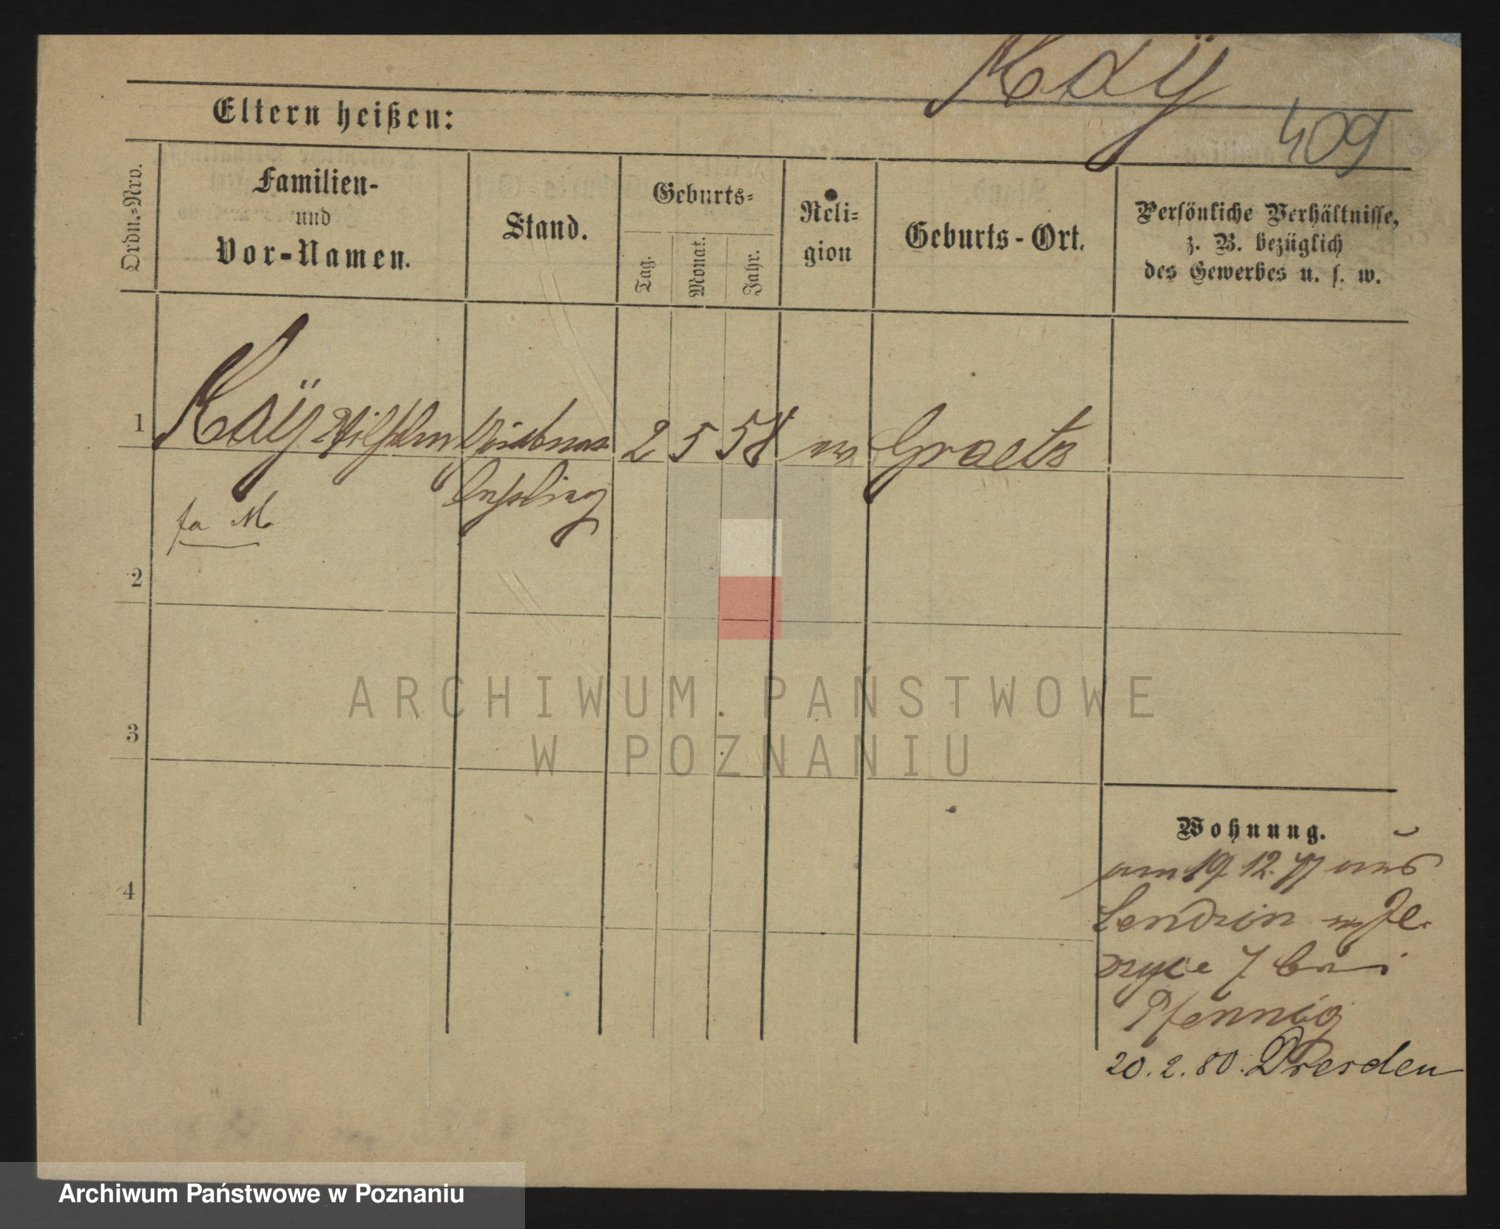 Kaÿ
409
Eltern heißen:
Ordn.-Nro.
Familien-
und
Vor-Namen.
Stand.
Geburts-
Tag.
Monat.
Jahr.
Reli-
gion
Geburts-Ort.
Persönliche Verhältnisse,
z. B. bezüglich
des Gewerbes u. s. w.
1 Kaÿ Wilhelm 2 5 58 ev Graetz
fa M
2
3
4
ARCHIWUM PAŃSTWOWE
W POZNANIU
Wohnung.
am 19 12. 77 aus
Lendzin Je-
7 bei
Pfennig
20. 2. 80. Dresden
Archiwum Państwowe w Poznaniu